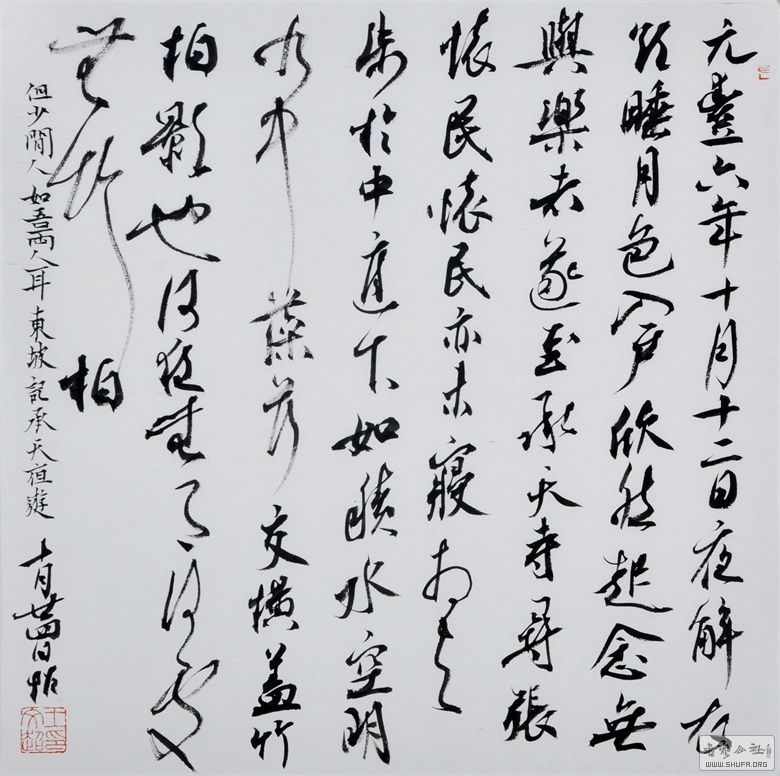 元豐六年十月十二日夜解衣
欲睡月色入戶欣然起念無
與樂者遂至承天寺尋張
懷民懷民亦未寢相與
步於中庭下如積水空明
水中藻荇交橫蓋竹
柏影也何夜無月何處
無竹柏
但少閒人如吾兩人耳東坡記承天夜遊
十月廿四日
WWW.SHUFA.ORG